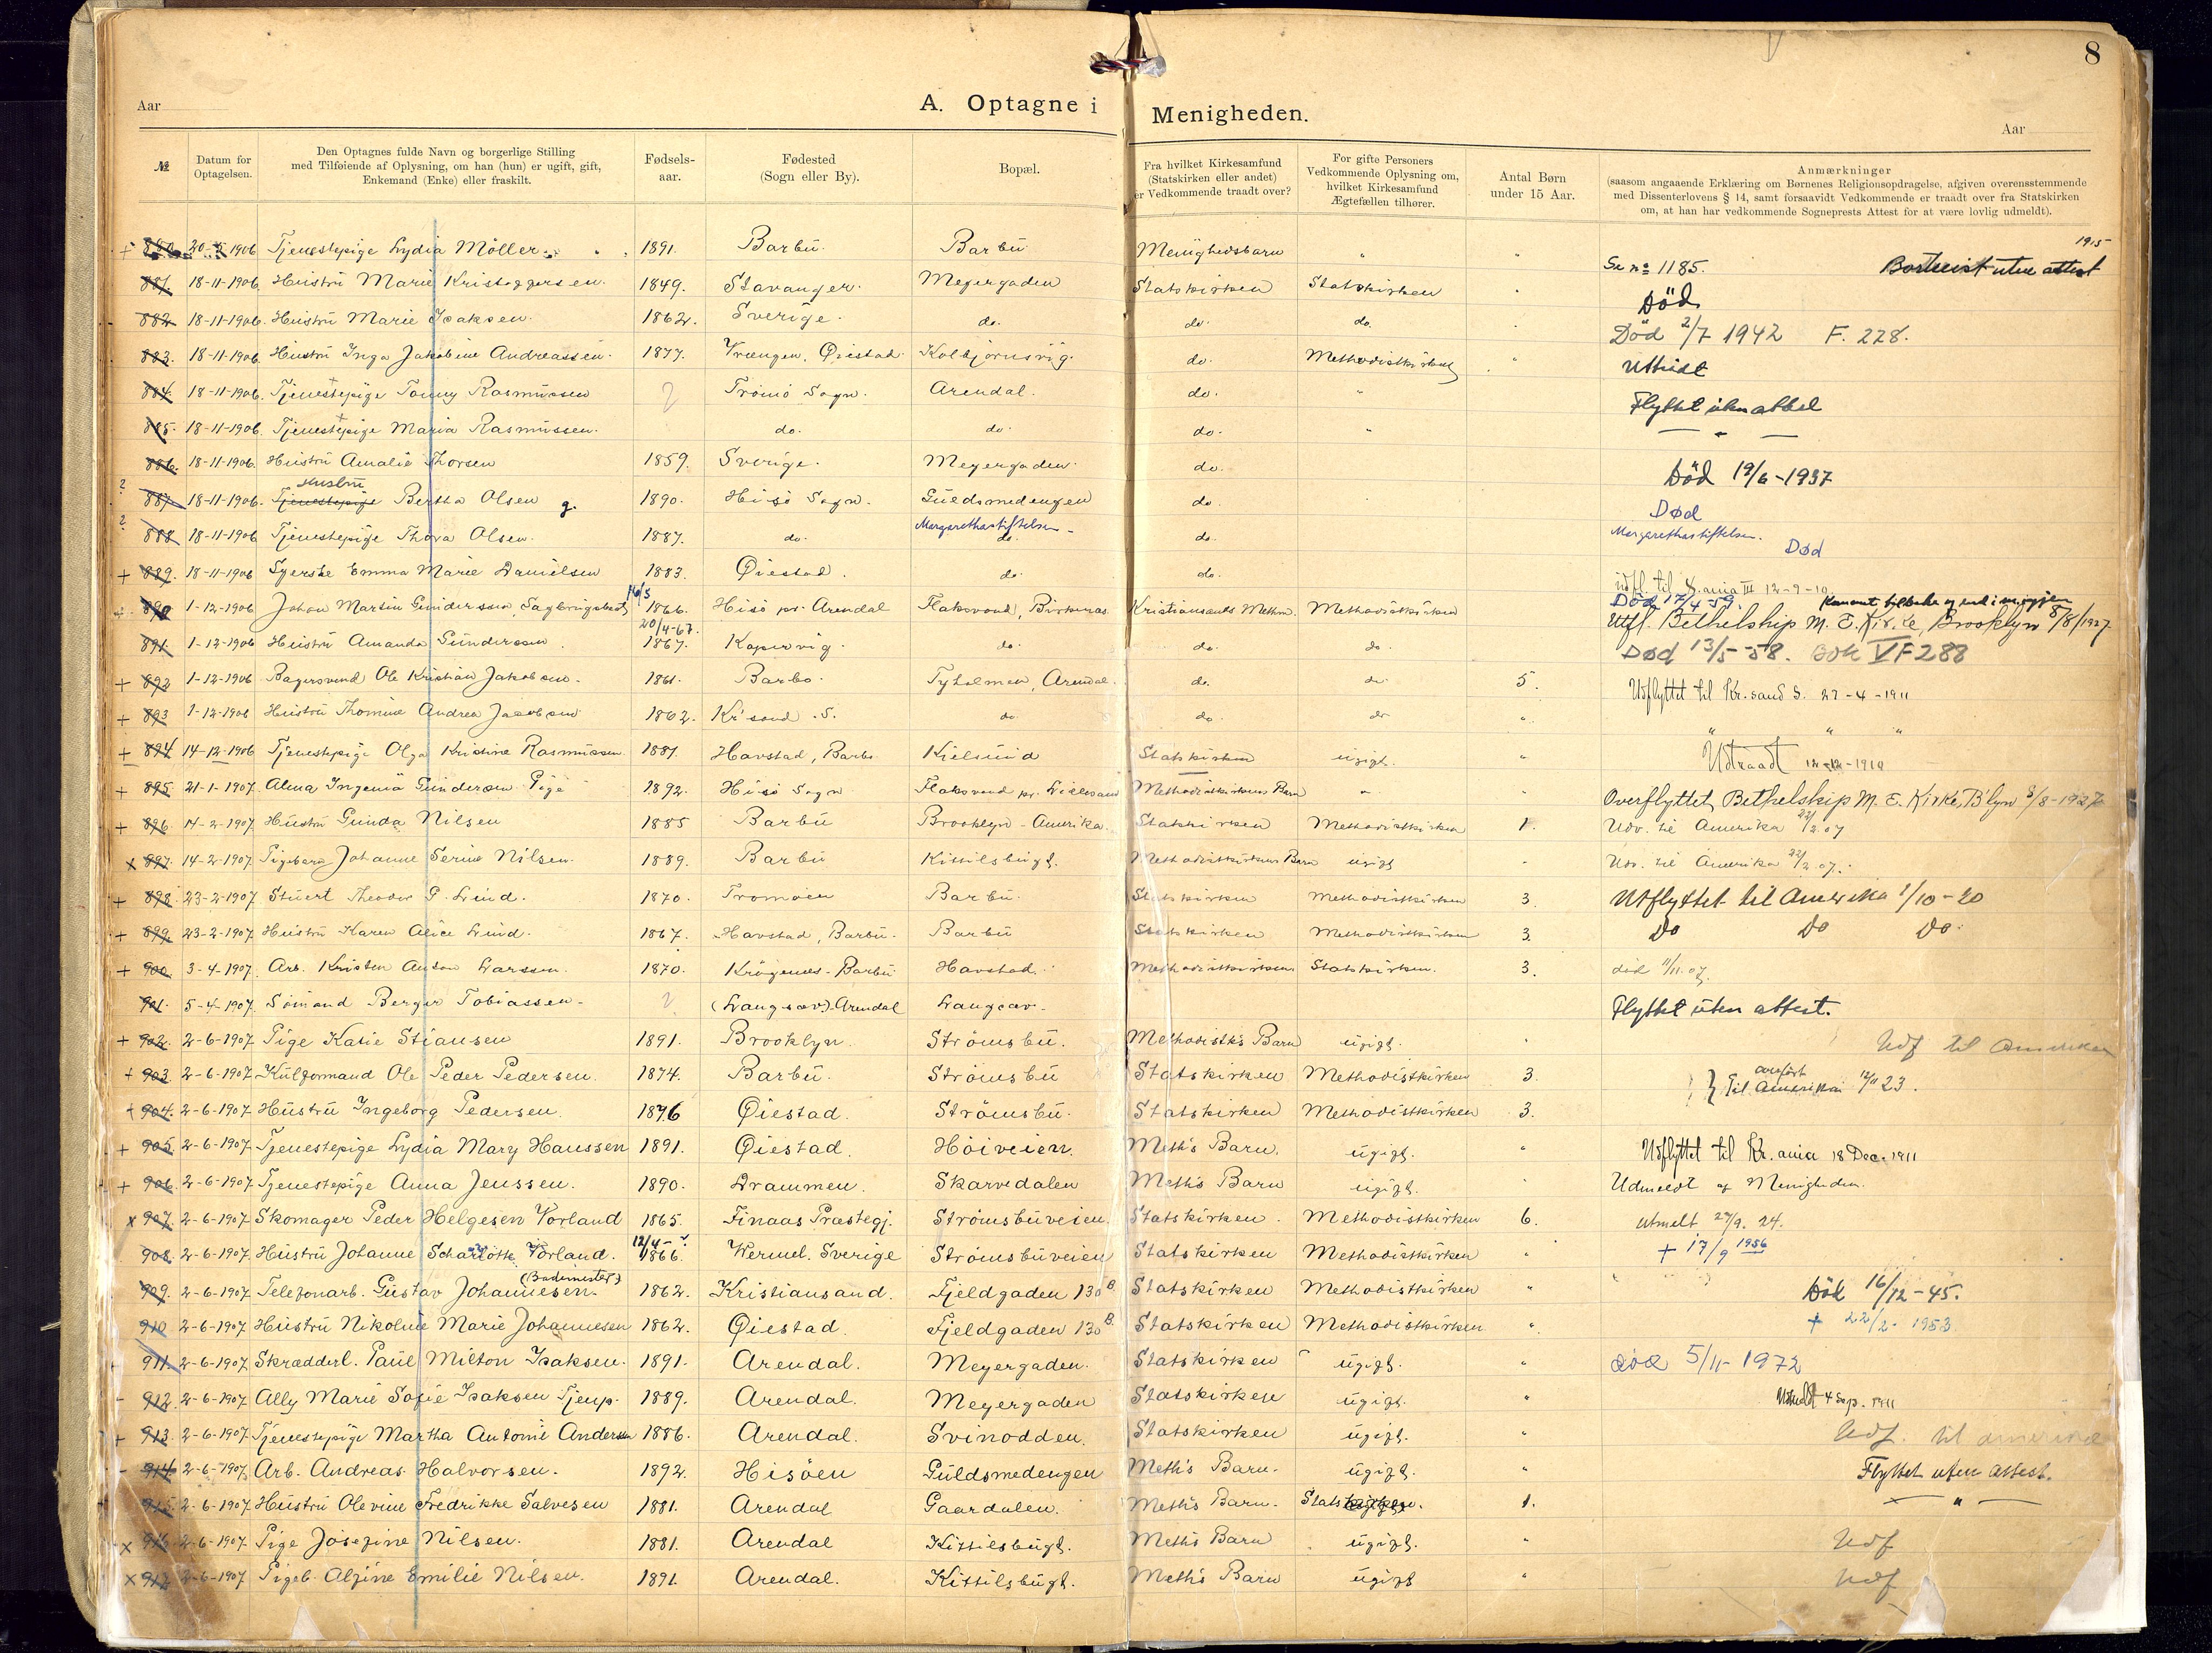 8
Aar
A. Optagne i Menigheden.
Aar
№ | Datum for Optagelsen. | Den Optagnes fulde Navn og borgerlige Stilling med Tilføiende af Oplysning, om han (hun) er ugift, gift, Enkemand (Enke) eller fraskilt. | Fødsels-aar. | Fødested (Sogn eller By). | Bopæl. | Fra hvilket Kirkesamfund (Statskirken eller andet) er Vedkommende traadt over? | For gifte Personers Vedkommende Oplysning om, hvilket Kirkesamfund Ægtefællen tilhører. | Antal Børn under 15 Aar. | Anmærkninger (saasom angaaende Erklæring om Børnenes Religionsopdragelse, afgiven overensstemmende med Dissenterlovens § 14, samt forsaavidt Vedkommende er traadt over fra Statskirken om, at han har vedkommende Sogneprests Attest for at være lovlig udmeldt).
+ 880. 1906 Tjenestepige Lydia Möller. 1891. Barbu. Barbu Menighedsbarn " " Se no 1185. uten attest 1915
881. 18-11-1906. Hustru Marie 1849. Stavanger. Meyergaden Statskirken Statskirken " Död
882 18-11-1906. Hustru Marie Isaksen. 1862. Sverige. do. do. do. Död 2/7 1942 F. 228.
883. 18-11-1906. Hustru Inga Jakobine Andreassen. 1877. Vrængen, Øiestad. Kolbjørnsvig. do. Methodistkirken "
884. 18-11-1906. Tjenestepige Tonny Rasmussen ? Tromö Sogn. Arendal. do. " Flyttet uten attest
885. 18-11-1906. Tjenestepige Maria Rasmussen. do. do. do. " — " —
886. 18-11-1906. Hustru Amalie Thorsen 1859. Sverige. Meyergaden. do. Död 19/6-1937
? 887 18-11-1906. Tjenestepige Hustru Bertha Olsen g. 1890. Hisö Sogn. Guldsmedengen do. Død
? 888 18-11-1906 Tjenestepige Thora Olsen. 1887. do. do. Margarethastiftelsen do. Margarethastiftelsen. Død
+ 889. 18-11-1906 Syerske Emma Marie Danielsen 1883. Øiestad. do. do. udfl. til Kr.ania III 12-9-10.
+ 890 1-12-1906 Johan Martin Gundersen, 1866. Hisö pr. Arendal Flaksvand, Birkenas Kristiansands Methm. Methodistkirken Död 17/4-59. Utfl. Bethelship M. E. Kirke, Brooklyn 8/8/1927
891. 1-12-1906 Hustru Amanda Gundersen 20/4-67. 1867. Kopervig. do. do. do. Død 13/5-58. Bok V F 288
+ 892 1-12-1906 Bagersvend Ole Kristian Jakobsen. 1861. Barbo. Tyholmen, Arendal. do. do. 5. Udflyttet til Kr.sand S. 27-4-1911
+ 893 1-12-1906 Hustru Thomine Andrea Jacobsen 1862. Kr'sand. S. do. do. do " " " "
+ 894 14-12-1906 Tjenestepige Olga Kristine Rasmussen 1887. Havstad, Barbo. Kielsund Statskirken ugigt. " Udtraadt
+ 895. 21-1-1907. Alma Ingenia Gundersen Pige 1892. Hisö Sogn Flaksvand pr. Lillesand Methodistkirkens Barn " " Overflyttet Bethelship M. E. Kirke, B'lyn 8/8-1927
+ 896. 14-2-1907. Hustru Gunda Nilsen 1885 Barbu Brooklyn - Amerika. Statskirken Methodistkirken 1. Udv. til Amerika 22/2.07
x 897. 14-2-1907. Pigebarn Johanne Serine Nilsen. 1889. Barbu Kittilsbugt. Methodistkirkens Barn ugigt " Udv. til Amerika 22/2.07.
+ 898. 23-2-1907. Stuert Theodor G. Lind. 1870. Tromöen Barbu. Statskirken Methodistkirken 3. Utflyttet til Amerika 1/10-20
+ 899. 23-2-1907. Hustru Karen Alice Lind. 1867. Havstad, Barbu. Barbu Statskirken Methodistkirken 3. Do Do Do.
+ 900. 3-4-1907. Arb. Kristen Anton Larssen. 1870. Krögenes-Barbu Havstad. Methodistkirken. Statskirken. 3. död 11/11.07.
901. 5-4-1907. Sömand Berger Tobiassen. ? (Langsæv). Arendal Langsæv. Flyttet uten attest.
+ 902. 2-6-1907. Pige Katie Stiansen 1891. Brooklyn. Strömsbu. Methodistk's Barn ugigt. " Udf til Amerika
+ 903. 2-6-1907. Kulformand Ole Peder Pedersen. 1874. Barbu. Strömsbu Statskirken Methodistkirken 3. } overfört Til Amerika 12/11 23.
+ 904. 2-6-1907. Hustru Ingeborg Pedersen. 1876 Øiestad. Strömsbu. Statskirken Methodistkirken 3.
+ 905. 2-6-1907. Tjenestepige Lydia Mary Hanssen 1891. Øiestad. Höiveien. Meth's Barn. ugigt. " Udflyttet til Kr.ania 18 Dec. 1911
+ 906. 2-6-1907. Tjenestepige Anna Jenssen. 1890. Drammen. Skarvedalen Meth's Barn ugigt. " Udmeldt af Menigheden.
x 907. 2-6-1907. Skomager Peder Helgesen Vorland 1865. Finaas Præstegj. Strömsbuveien. Statskirken. Methodistkirken 6. Utmelt 29/9. 24.
908. 2-6-1907. Hustru Johanne Vorland. 12/4 1866. Wermel. Sverige Strömsbuveien Statskirken Methodistkirken " + 17/9 1956
909. 2-6-1907. Telefonarb. Gustav Johannesen. (Bademester) 1862. Kristiansand. Fjeldgaden 130 B. Statskirken Methodistkirken " Död 16/12-45.
910 2-6-1907. Hustru Nikoline Marie Johannesen 1862. Øiestad. Fjeldgaden 130 B. Statskirken Methodistkirken " + 22/2-1953
911. 2-6-1907. Skrædderl. Paul Milton Isaksen. 1891. Arendal. Meyergaden. Statskirken ugigt. " död 5/11-1972
912. 2-6-1907. Ally Marie Sofie Isaksen Tjenp. 1889. Arendal. Meyergaden Statskirken ugigt. " Utmeldt 4 Sep. 1911
+ 913. 2-6-1907. Tjenestepige Martha Antonie Andersen 1886. Arendal. Svinodden. Statskirken ugigt. " Udf. til Amerika
914 2-6-1907. Arb. Andreas Halvorsen. 1892. Hisöen Guldsmedengen Meth's Barn. ugigt. " Flyttet uten attest.
915 2-6-1907. Hustru Olevine Fredrikke Salvesen 1881. Arendal Gaardalen. Meth's Barn. Statskirken. 1. — " —
x 916 2-6-1907. Pige Josefine Nilsen. 1881. Arendal Kittilsbugt. Meth's Barn ugigt. " Udf
x 917 2-6-1907. Pigeb. Alfine Emilie Nilsen. 1891. Arendal. Kittilsbugt. Meth's Barn ugigt " Udf